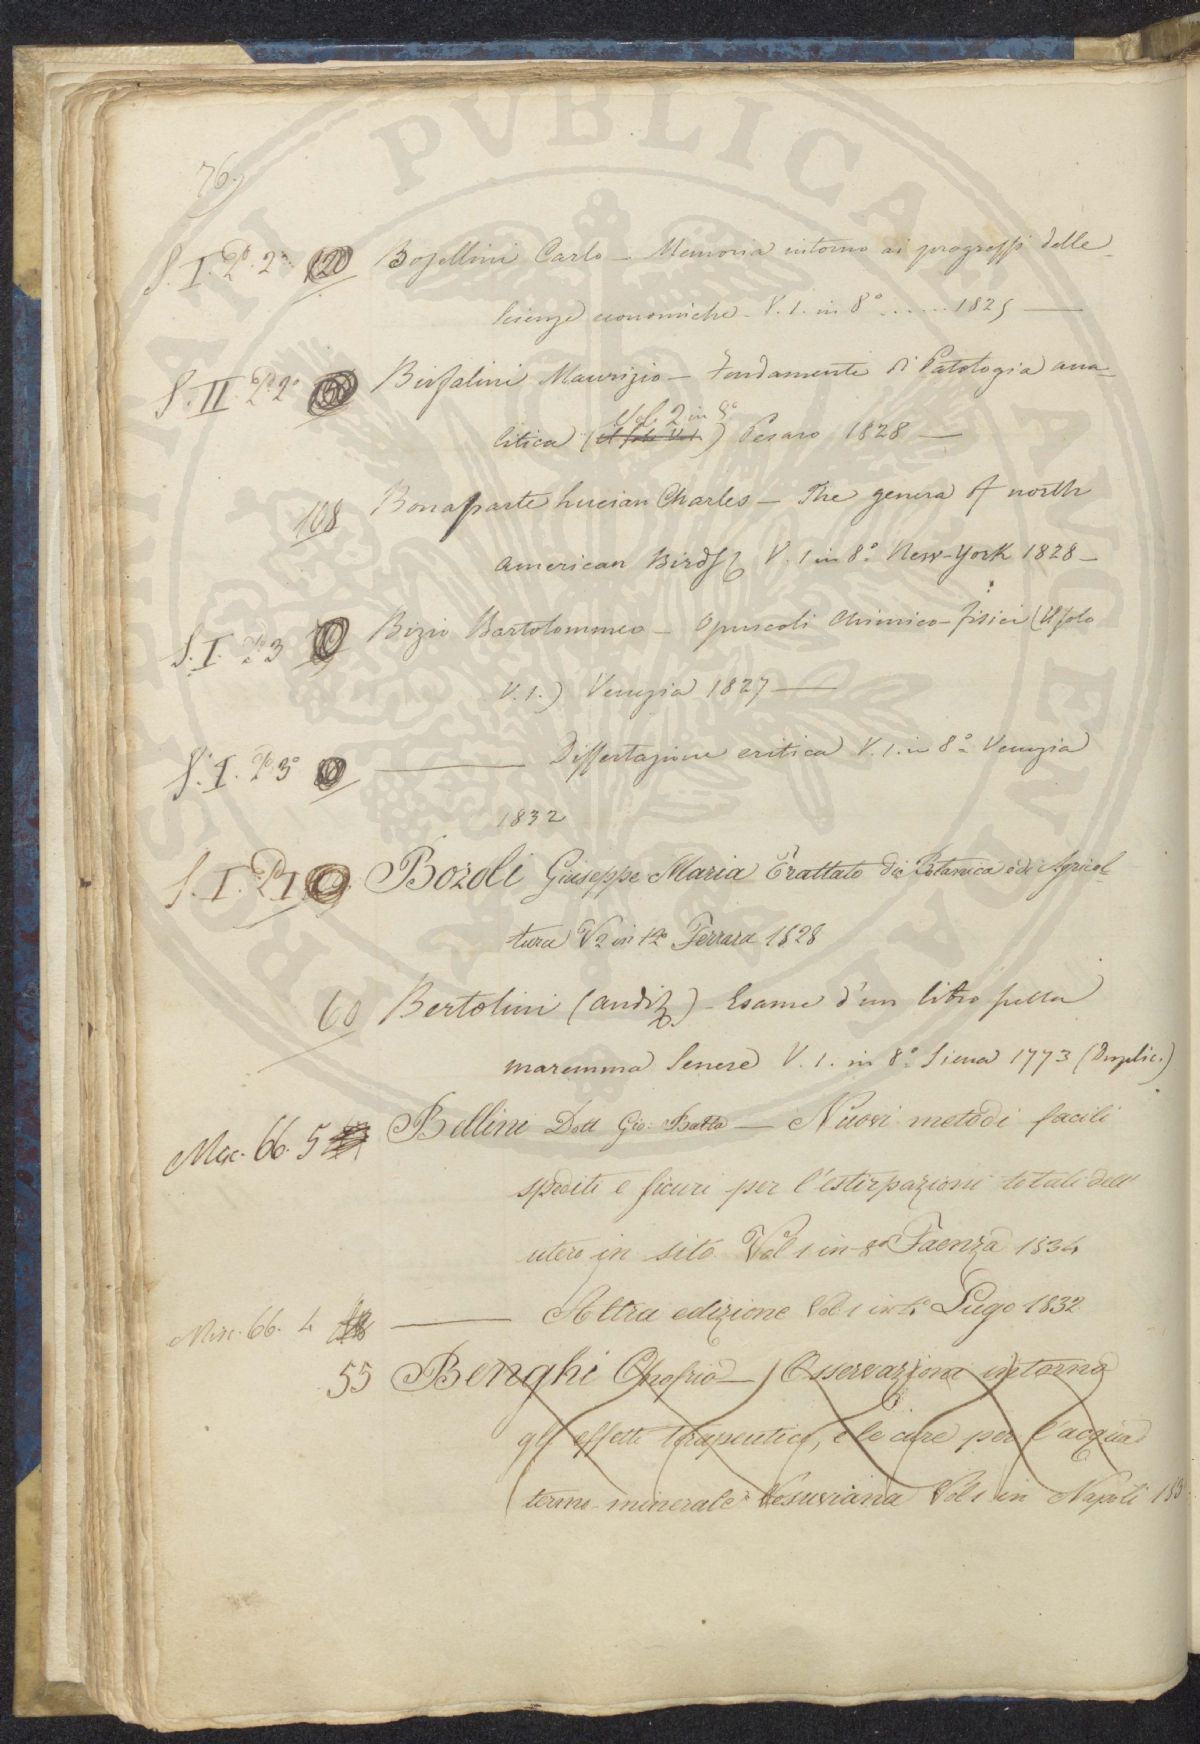 76.
S. I. P. 2º 120 Bosellini Carlo — Memoria intorno ai progressi delle
scienze economiche. V. 1. in 8º ...... 1825 —
S. II. P. 2º Bufalini Maurizio — Fondamenti di Patologia ana-
litica (Vol. 2 in 8º) Pesaro 1828 —
108 Bonaparte Lucian Charles — The genera of north
american Birds V. 1 in 8º New-York 1828 —
S. I. P. 3 Bizio Bartolommeo — Opuscoli Chimico-fisici (Il solo
V. 1.) Venezia 1827 —
S. I. P. 3º — Dissertazione critica V. 1. in 8º Venezia
1832
S. I. P. 1 Bozoli Giuseppe Maria Trattato di Botanica e di Agricol-
tura V 2 in 12º Ferrara 1828
60 Bertolini — Esame d'un libro sulla
maremma Senese V. 1. in 8º Siena 1773 (Duplic.)
Misc. 66. 5 Bellini Dott Gio: Batta — Nuovi metodi facili
spediti e sicuri per l'estirpazioni totali dell'
utero in sito Vol 1 in 8º Faenza 1834
Misc. 66. 4 — Altra edizione Vol. 1 in 4º Lugo 1832
55 Benghi Onofrio — Osservazioni intorno
gli effetti terapeutici, e le cure per l'acqua
termo-minerale Vesuviana Vol 1 in Napoli